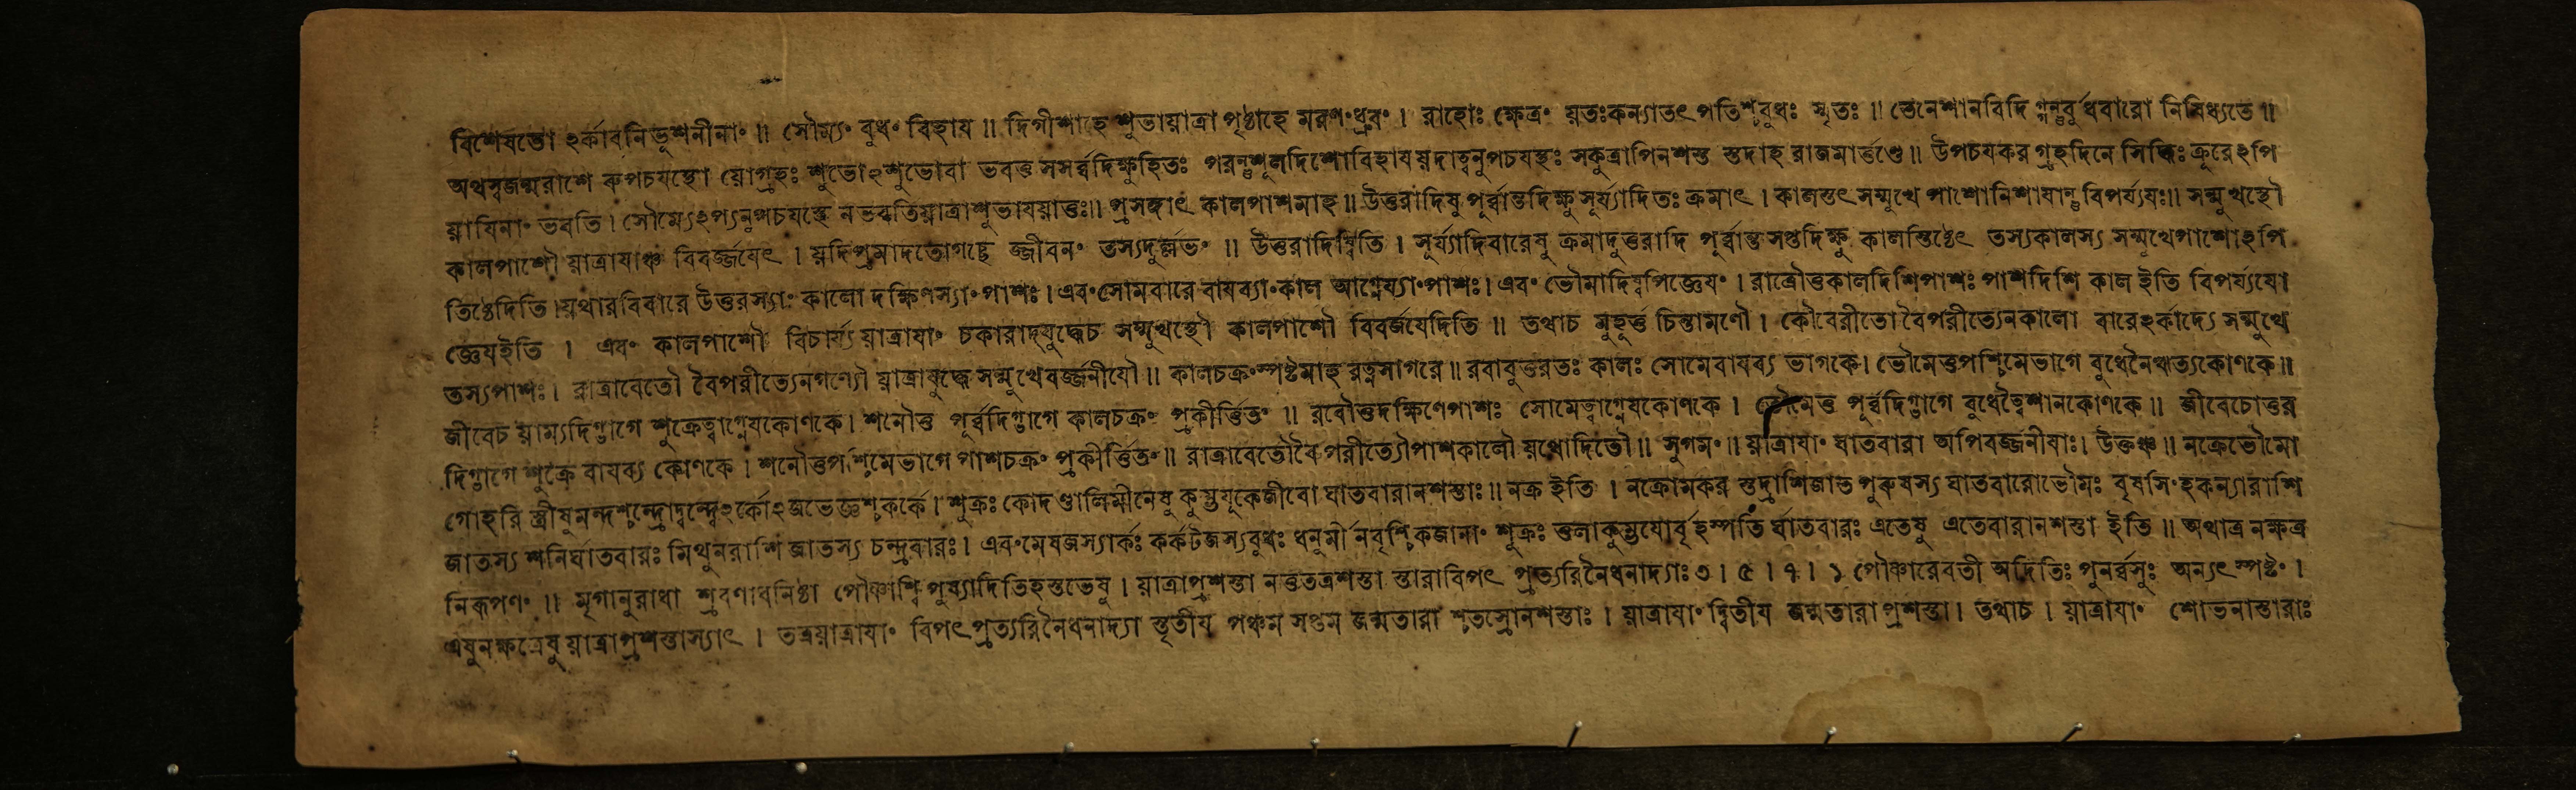 বিশেষতো ঽর্কাবনিভূশনীনাং ॥ সৌম্যং বুধং বিহায ॥ দিগীশাহে শুভাযাত্রা পৃষ্ঠাহে মরণংধ্রুবং । রাহোঃ ক্ষেত্রং য়তঃকন্যাতৎ পতিশ্চবুধঃ স্মৃতঃ ॥ তেনেশানবিদি বুর্ধবারো নিষিধ্যতে ॥
অথবৃজন্মরাশে রুপচযস্থো য়োগ্রহঃ শুভোঽশুভোবা ভবতু সসর্ব্বদিক্ষুহিতঃ পরন্তুশূলদিশোবিহাযয়দাত্বনুপচযস্থঃ সকুত্রাপিনশস্ত স্তদাহ রাজমার্ত্তণ্ডে ॥ উপচযকরগ্রহদিনে সিদ্ধিঃ ক্রূরেঽপি
য়াযিনাং ভবতি । সৌম্যেঽপ্যনুপচযস্থে নভবতিয়াত্রাশুভাযয়াতুঃ॥ প্রসঙ্গাৎ কালপাশমাহ ॥ উত্তরাদিষু পূর্ব্বান্তদিক্ষু সূর্য্যাদিতঃ ক্রমাৎ । কালস্তৎ সম্মুখে পাশোনিশাযান্তু বিপর্য্যযঃ॥ সম্মুখস্থৌ
কালপাশৌ য়াত্রাযাঞ্চ বিবর্জ্জযেৎ । য়দিপ্রমাদতোগচ্ছে জ্জীবনং তস্যদুর্ল্লভং ॥ উত্তরাদিষ্বিতি । সূর্য্যাদিবারেষু ক্রমাদুত্তরাদি পূর্ব্বান্ত সপ্তদিক্ষু কালস্তিষ্ঠেৎ তস্যকালস্য সম্মুখেপাশোঽপি
তিষ্ঠেদিতি ।যথারবিবারে উত্তরস্যাং কালো দক্ষিণস্যাং পাশঃ । এবংসোমবারে বাযব্যাংকাল আগ্নেয্যাংপাশঃ । এবং ভৌমাদিষ্বপিজ্ঞেযং । রাত্রৌতুকালদিশিপাশঃ পাশদিশি কাল ইতি বিপর্য্যযো
জ্ঞেযইতি । এবং কালপাশৌ বিচার্য্যয়াত্রাযাং চকারাদ্‌যুদ্ধেচ সম্মুখস্থৌ কালপাশৌ বিবর্জযেদিতি ॥ তথাচ মুহূর্ত্ত চিন্তামণৌ । কৌবেরীতোবৈপরীত্যেনকালো বারেঽর্কাদ্যে সম্মুখে
তস্যপাশঃ । রাত্রাবেতৌ বৈপরীত্যেনগণ্যৌ য়াত্রাযুদ্ধে সম্মুখেবর্জ্জনীযৌ ॥ কালচক্রংস্পষ্টমাহ রত্নসাগরে ॥ রবাবুত্তরতঃ কালঃ সোমেবাযব্য ভাগকে। ভৌমেতুপশ্চিমেভাগে বুধেনৈঋত্যকোণকে॥
জীবেচ য়াম্যদিগ্ভাগে শুক্রেত্বাগ্নেযকোণকে । শনৌতু পূর্ব্বদিগ্ভাগে কালচক্রং প্রকীর্ত্তিতং ॥ রবৌতুদক্ষিণেপাশঃ সোমেত্বাগ্নেযকোণকে । ভৌমেতু পূর্ব্বদিগ্ভাগে বুধেত্বৈশানকোণকে ॥ জীবেচোত্তর
দিগ্ভাগে শুক্রে বাযব্য কোণকে । শনৌতুপশ্চিমেভাগে পাশচক্রং প্রকীর্ত্তিতং ॥ রাত্রাবেতৌবৈপরীত্যৌপাশকালৌ য়থোদিতৌ ॥ সুগমং ॥ য়াত্রাযাং ঘাতবারা অপিবর্জ্জনীযাঃ। উক্তঞ্চ ॥ নক্রেভৌমো
গোহরি স্ত্রীষুমন্দশ্চন্দ্রোদ্বন্দ্বেঽর্কোঽজভেজ্ঞশ্চকর্কে । শুক্রঃ কোদণ্ডালিমীনেষু কুম্ভযূকেজীবো ঘাতবারানশস্তাঃ ॥ নক্র ইতি । নক্রোমকর স্তদ্রাশিজাত পুরুষস্য ঘাতবারোভৌমঃ বৃষসিংহকন্যারাশি
জাতস্য শনির্ঘাতবারঃ মিথুনরাশি জাতস্য চন্দ্রবারঃ । এবংমেষজস্যার্কঃ কর্কটজস্যবুধঃ ধনুর্মীনবৃশ্চিকজানাং শুক্রঃ তুলাকুম্ভযোর্বৃহস্পতি র্ঘাতবারঃ এতেষু এতেবারানশস্তা ইতি ॥ অথাত্র নক্ষত্র
নিরূপণং ॥ মৃগানুরাধা শ্রবণাধনিষ্ঠা পৌষ্ণাশ্বি পুষ্যাদিতিহস্তভেষু । য়াত্রাপ্রশস্তা নতুতত্রশস্তা স্তারাবিপৎ প্রত্যরিনৈধনাদ্যাঃ ৩ । ৫ । ৭ । ১ পৌষ্ণারেবতী অদিতিঃ পুনর্ব্বসুঃ অন্যৎ স্পষ্টং ।
এষুনক্ষত্রেষু য়াত্রাপ্রশস্তাস্যাৎ । তত্রয়াত্রাযাং বিপৎপ্রত্যরিনৈধনাদ্যা স্তৃতীয পঞ্চম সপ্তম জন্মতারা শ্চতস্রোনশস্তাঃ । য়াত্রাযাং দ্বিতীয জন্মতারা প্রশস্তা। তথাচ । য়াত্রাযাং শোভনাস্তারাঃ